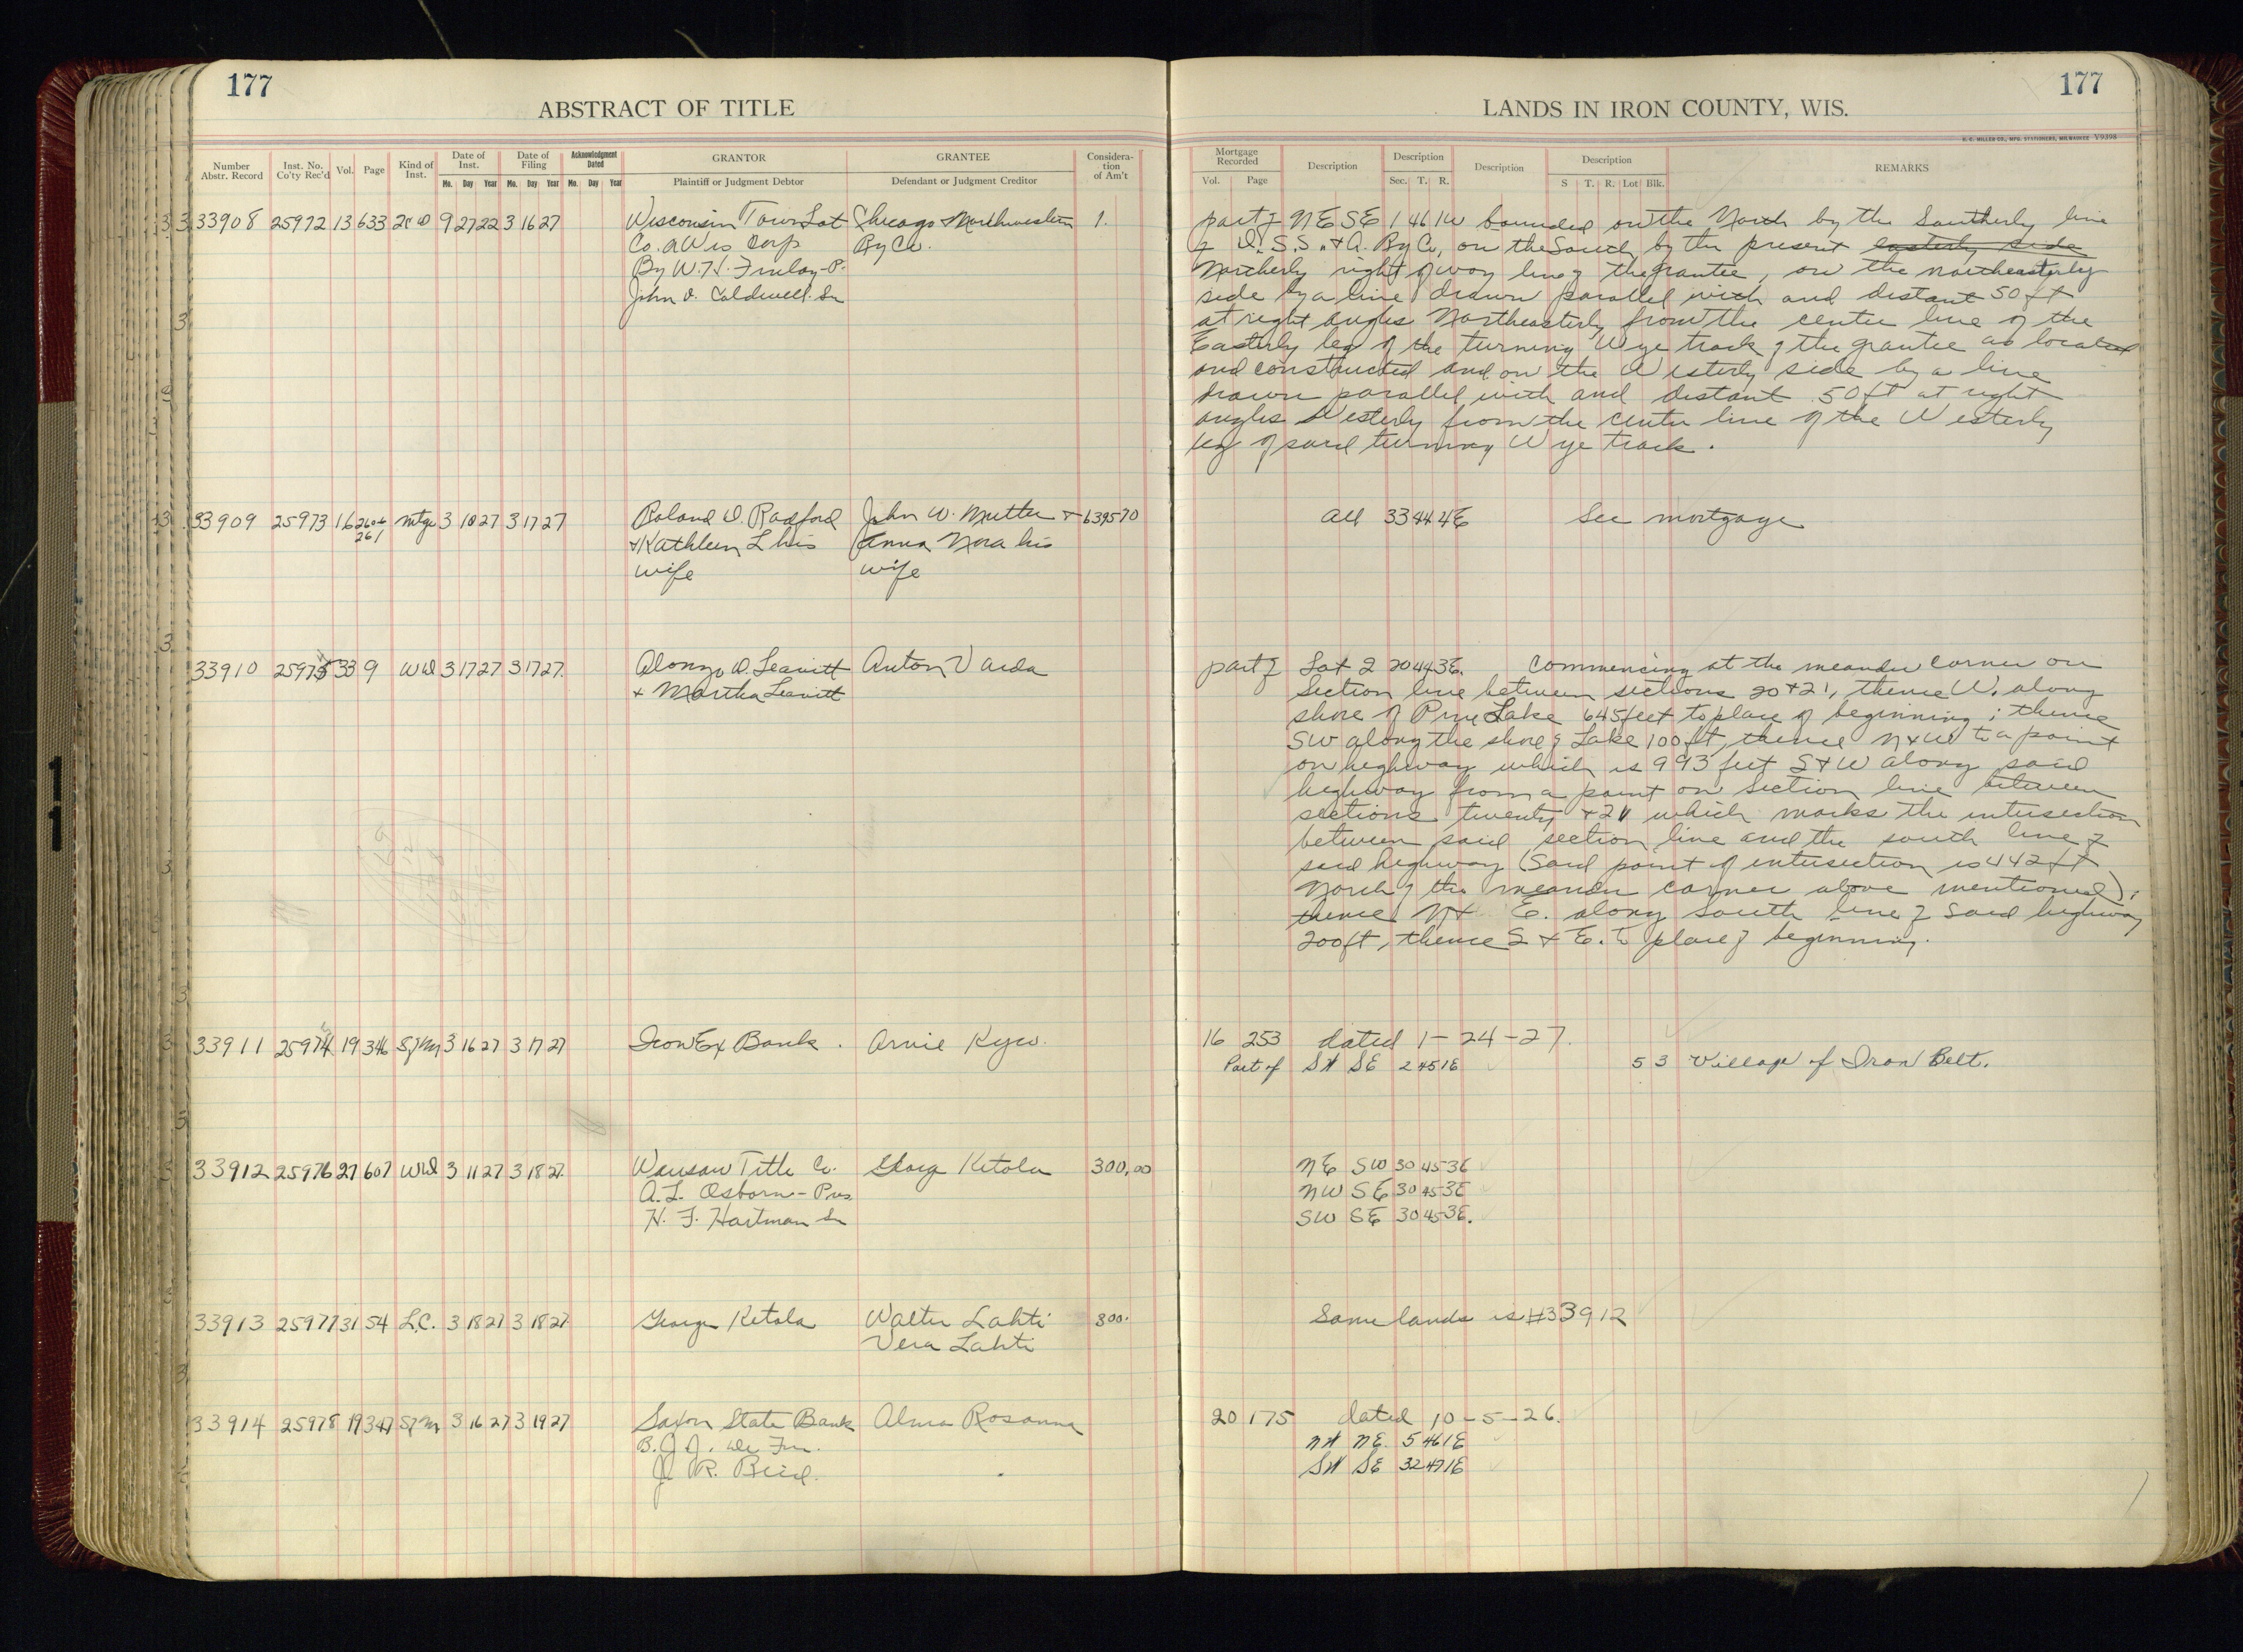 177
ABSTRACT OF TITLE
Number Abstr. Record
Inst. No. Co'ty Rec'd
Vol.
Page
Kind of Inst.
Date of Inst.
Mo. Day Year
Date of Filing
Mo. Day Year
Acknowledgment Dated
Mo. Day Year
GRANTOR
Plaintiff or Judgment Debtor
GRANTEE
Defendant or Judgment Creditor
Considera-tion of Am't
33908 25972 13 633 9 27 22 3 16 27 Wisconsin Town Lot Chicago & Northwestern 1.
Co. a Wis Corp Ry Co.
By W. H. Finlay - P.
John D. Caldwell. Sec
33909 25973 16 260+ mtge 3 10 27 3 17 27 Roland D. Radford John W. Mutter & 6395 70
261 & Kathleen L his Anna Nora his
wife wife
33910 25975 33 9 WD 3 17 27 3 17 27. Alonzo D. Leavitt Anton Vaida
+ Martha Leavitt
33911 25974 19 346 3 16 27 3 17 27 Iron Ex Bank. Arvie Kyro.
33912 25976 27 607 WD 3 11 27 3 18 27. Wausau Title Co. George Ketola 300.00
A. L. Osborn - Pres
H. F. Hartman Sec
33913 25977 31 54 L.C. 3 18 27 3 18 27. George Ketola Walter Lahti 800.
Vera Lahti
33914 25978 19 347 3 16 27 3 19 27 Saxon State Bank Alma Rosanna
J. R.
177
LANDS IN IRON COUNTY, WIS.
H. C. MILLER CO., MFG. STATIONERS, MILWAUKEE V9398
Mortgage Recorded
Vol. Page
Description
Description
Sec. T. R.
Description
Description
S T. R. Lot Blk.
REMARKS
part of NE SE 1 46 1W bounded on the North by the Southerly line
of D. S. S. & A. Ry Co, on the South by the present easterly side
Northerly right of way line of the grantee, on the northeasterly
side by a line drawn parallel with and distant 50 ft
at right angles Northeasterly from the center line of the
Easterly leg of the turning Wye track of the grantee as located
and constructed and on the Westerly side by a line
drawn parallel with and distant 50 ft at right
angles Westerly from the center line of the Westerly
leg of said turning Wye track.
All 33 44 4E See mortgage
part of Lot 2 20 44 3E. Commencing at the meander corner on
Section line between sections 20 + 21, thence W. along
shore of Pine Lake 645 feet to place of beginning; thence
SW along the shore of Lake 100 ft, thence N & W to a point
on highway which is 993 feet S & W along said
highway from a point on section line between
sections twenty + 21 which marks the intersection
between said section line and the south line of
said highway (Said point of intersection is 442 ft
North of the meander corner above mentioned);
thence N + E. along south line of said highway
200 ft, thence S & E. to place of beginning.
16 253 dated 1-24-27.
Part of S½ SE 2 45 1E 53 Village of Iron Belt.
NE SW 30 45 3E
NW SE 30 45 3E
SW SE 30 45 3E.
Same lands is #33912
20 175 dated 10-5-26.
N½ NE. 5 46 1E
S½ SE 32 47 1E